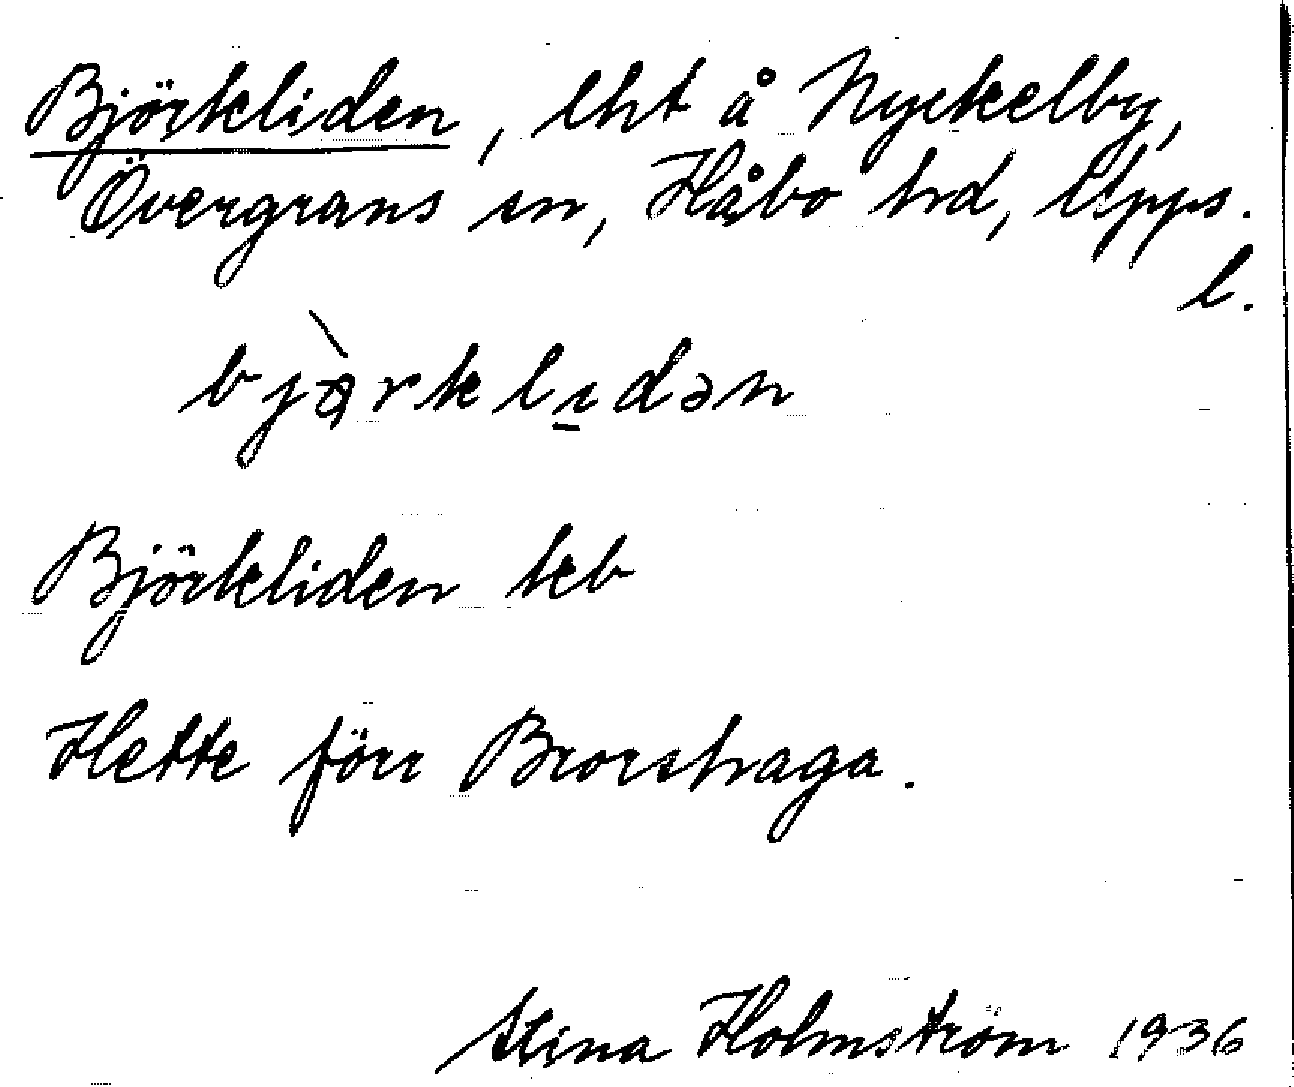 Björkliden, lht å Nyckelby,
Övergrans sn, Håbo hd, Upps.
l.
Björkliden kb
Hette förr Brorshaga.
Stina Holmström 1936